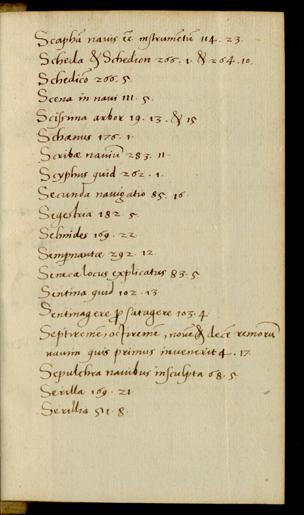 Scapha navis ẽẽ instrumentũ 114. 23.
Scheda & Schedion 266. 1. & 264. 10.
Schedico 266. 5
Scena in navi 111. 5.
Scissima arbor 19. 13. & 15
Schænus 176. 1.
Scribæ naviũ 283. 11
Scyphus quid 262. 1.
Secunda navigatio 85. 16.
Segestria 182. 5
Selnides 169. 22
Semnantæ 292. 12.
Seneca locus explicatus 83. 5
Sentina quid 102. 13
Sentinagere ꝓ satagere 103. 4.
Septiremẽ, octiremẽ, novẽ & decẽ remorũ
navim quis primus invenerit 4. 17
Sepulchra navibus insculpta 68. 5
Serilla 169. 21
Serillia 511. 8.